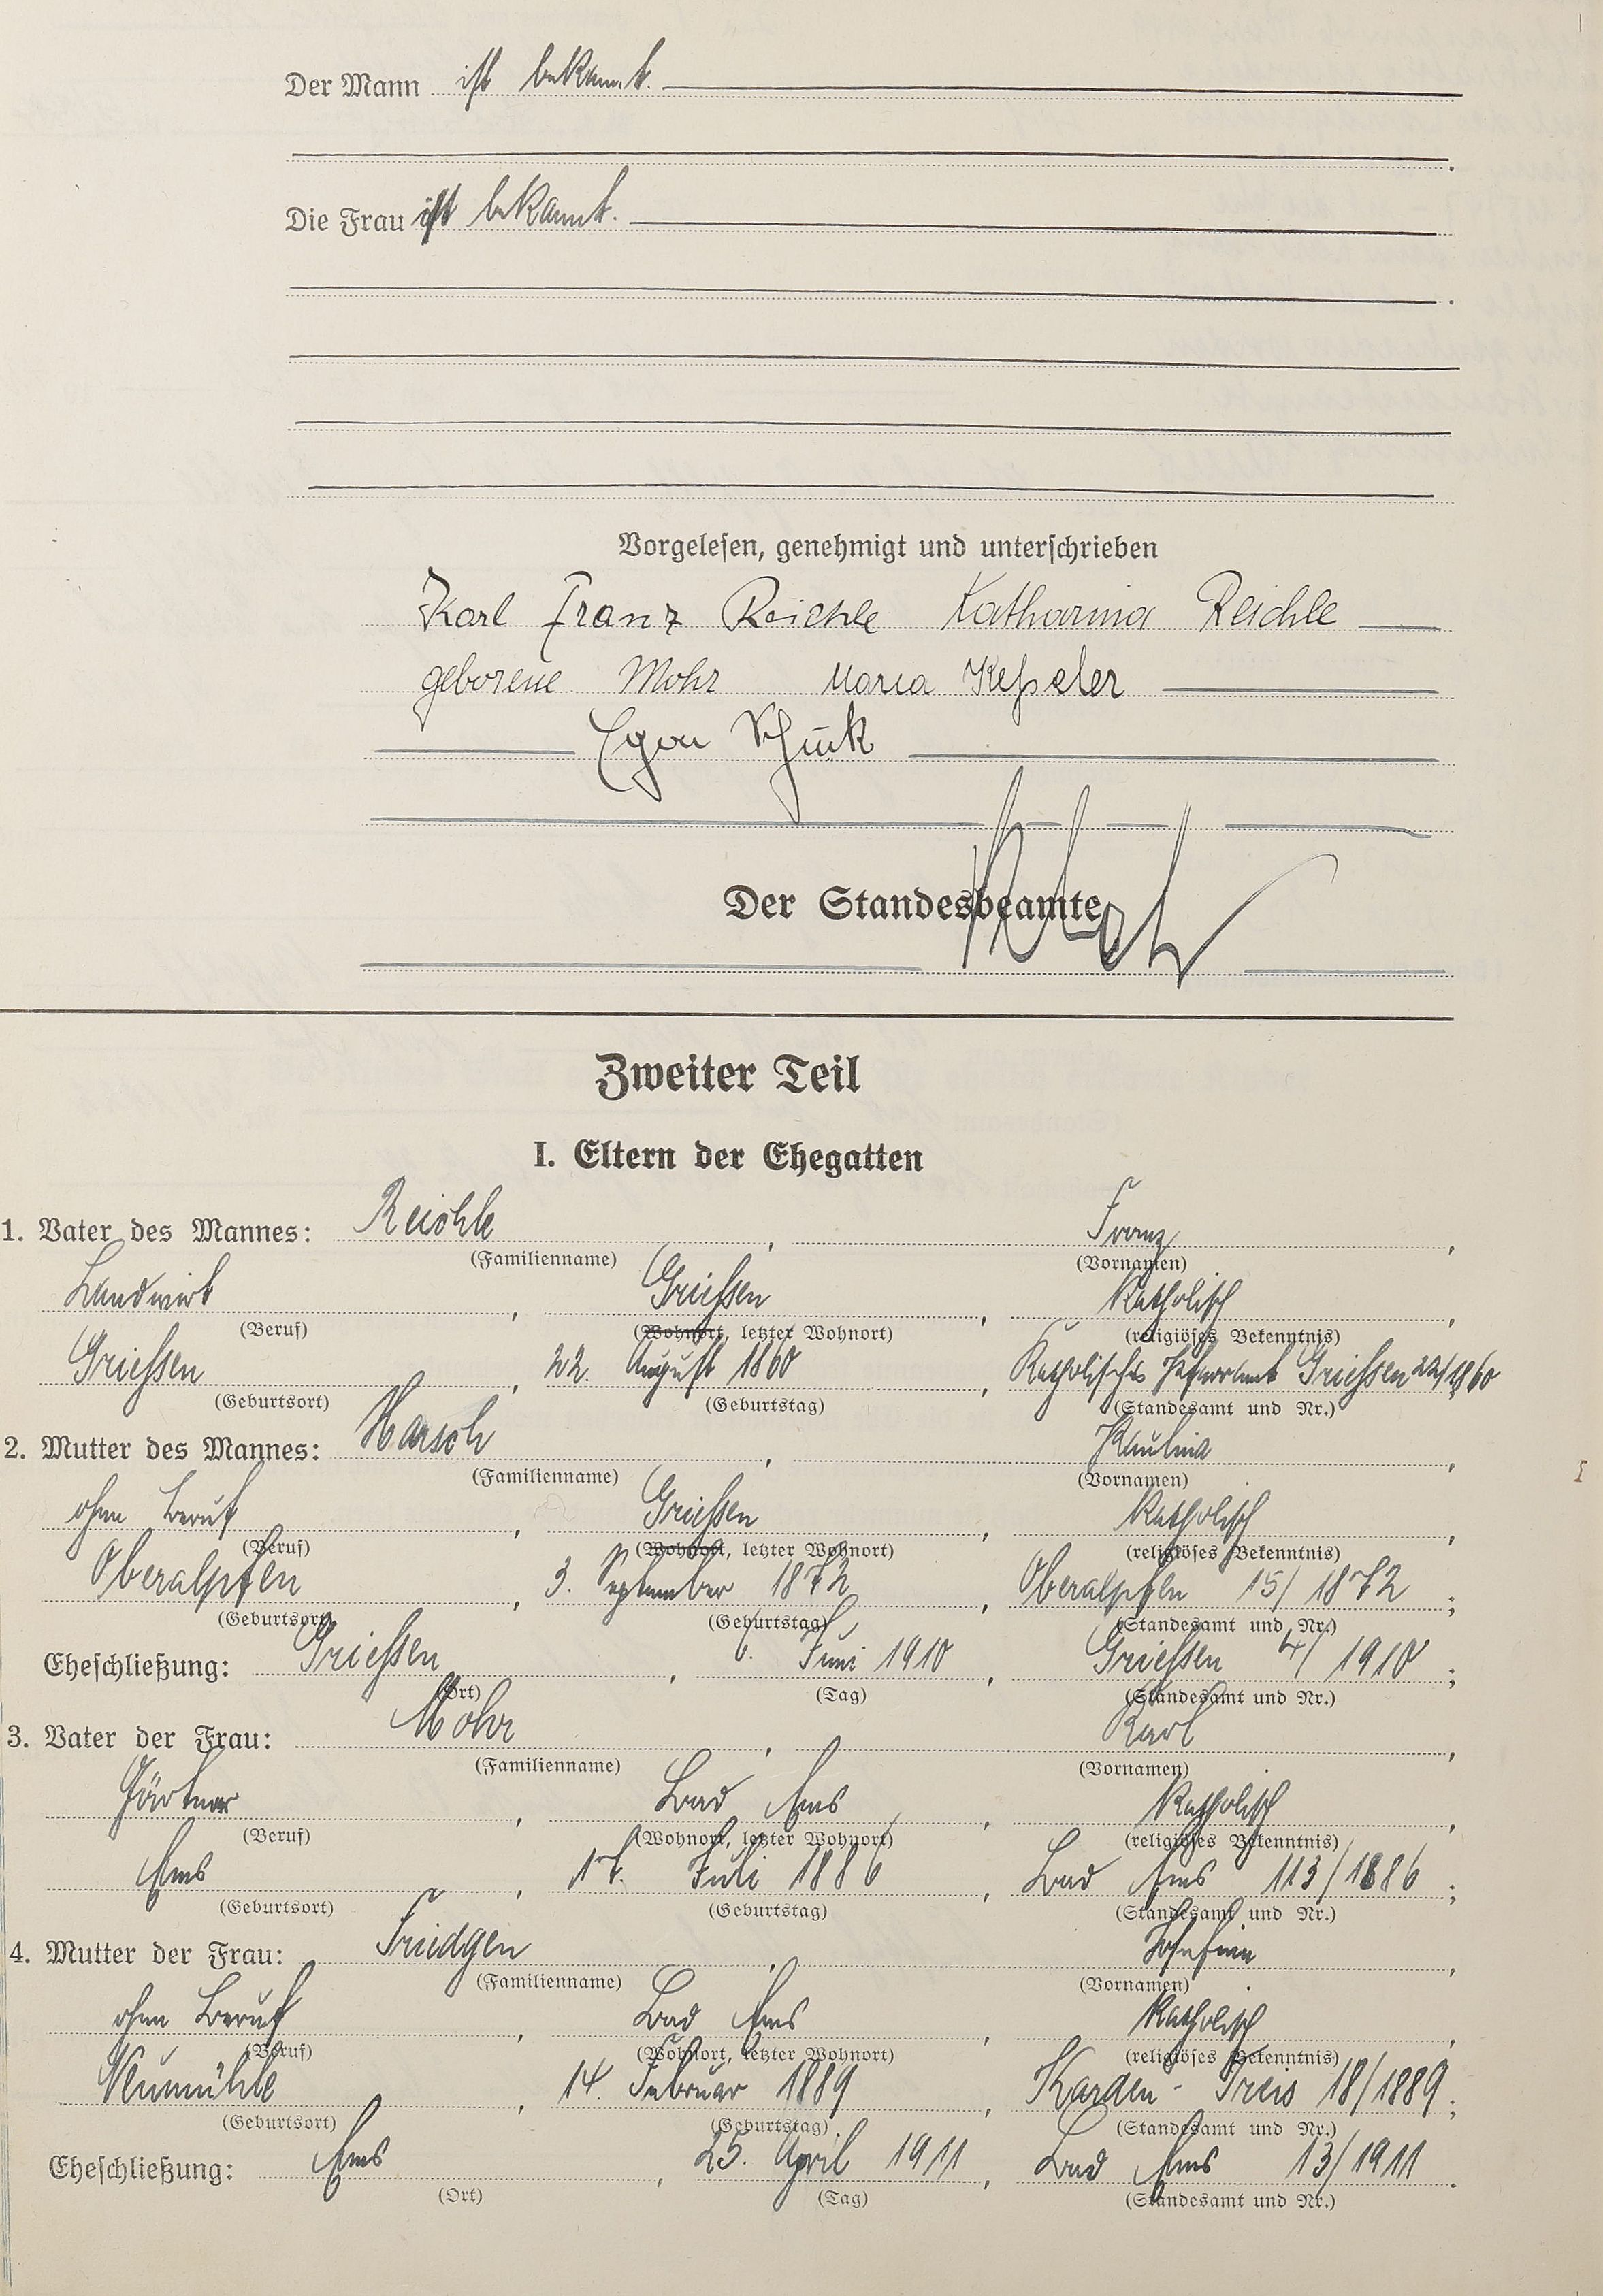 Der Mann ist bekannt.
Die Frau ist bekannt.
Vorgelesen, genehmigt und unterschrieben
Karl Franz Reichle Katharina Reichle
geborene Mohr Maria Keßeler
Egon
Der Standesbeamte
Zweiter Teil
I. Eltern der Ehegatten
1. Vater des Mannes: Reichle, Franz,
(Familienname) (Vornamen)
Landwirt, Griessen, katholisch,
(Beruf) (Wohnort, letzter Wohnort) (religiöses Bekenntnis)
Griessen, 22. August 1860, Katholisches Pfarramt Griessen 22/1860
(Geburtsort) (Geburtstag) (Standesamt und Nr.)
2. Mutter des Mannes: Harsch, Paulina,
(Familienname) (Vornamen)
ohne Beruf, Griessen, katholisch,
(Beruf) (Wohnort, letzter Wohnort) (religiöses Bekenntnis)
Oberalpfen, 3. September 1872, Oberalpfen 15/1872;
(Geburtsort) (Geburtstag) (Standesamt und Nr.)
Eheschließung: Griessen, 6. Juni 1910, Griessen 4/1910;
(Ort) (Tag) (Standesamt und Nr.)
3. Vater der Frau: Mohr, Karl,
(Familienname) (Vornamen)
Gärtner, Bad Ems, katholisch,
(Beruf) (Wohnort, letzter Wohnort) (religiöses Bekenntnis)
Ems, Juli 1886, Bad Ems 113/1886;
(Geburtsort) (Geburtstag) (Standesamt und Nr.)
4. Mutter der Frau: Friedgen, Josefine,
(Familienname) (Vornamen)
ohne Beruf, Bad Ems, katholisch,
(Beruf) (Wohnort, letzter Wohnort) (religiöses Bekenntnis)
Neumühle, 14. Februar 1889, Karden-Treis 18/1889;
(Geburtsort) (Geburtstag) (Standesamt und Nr.)
Eheschließung: Ems, 25. April 1911, Bad Ems 13/1911.
(Ort) (Tag) (Standesamt und Nr.)